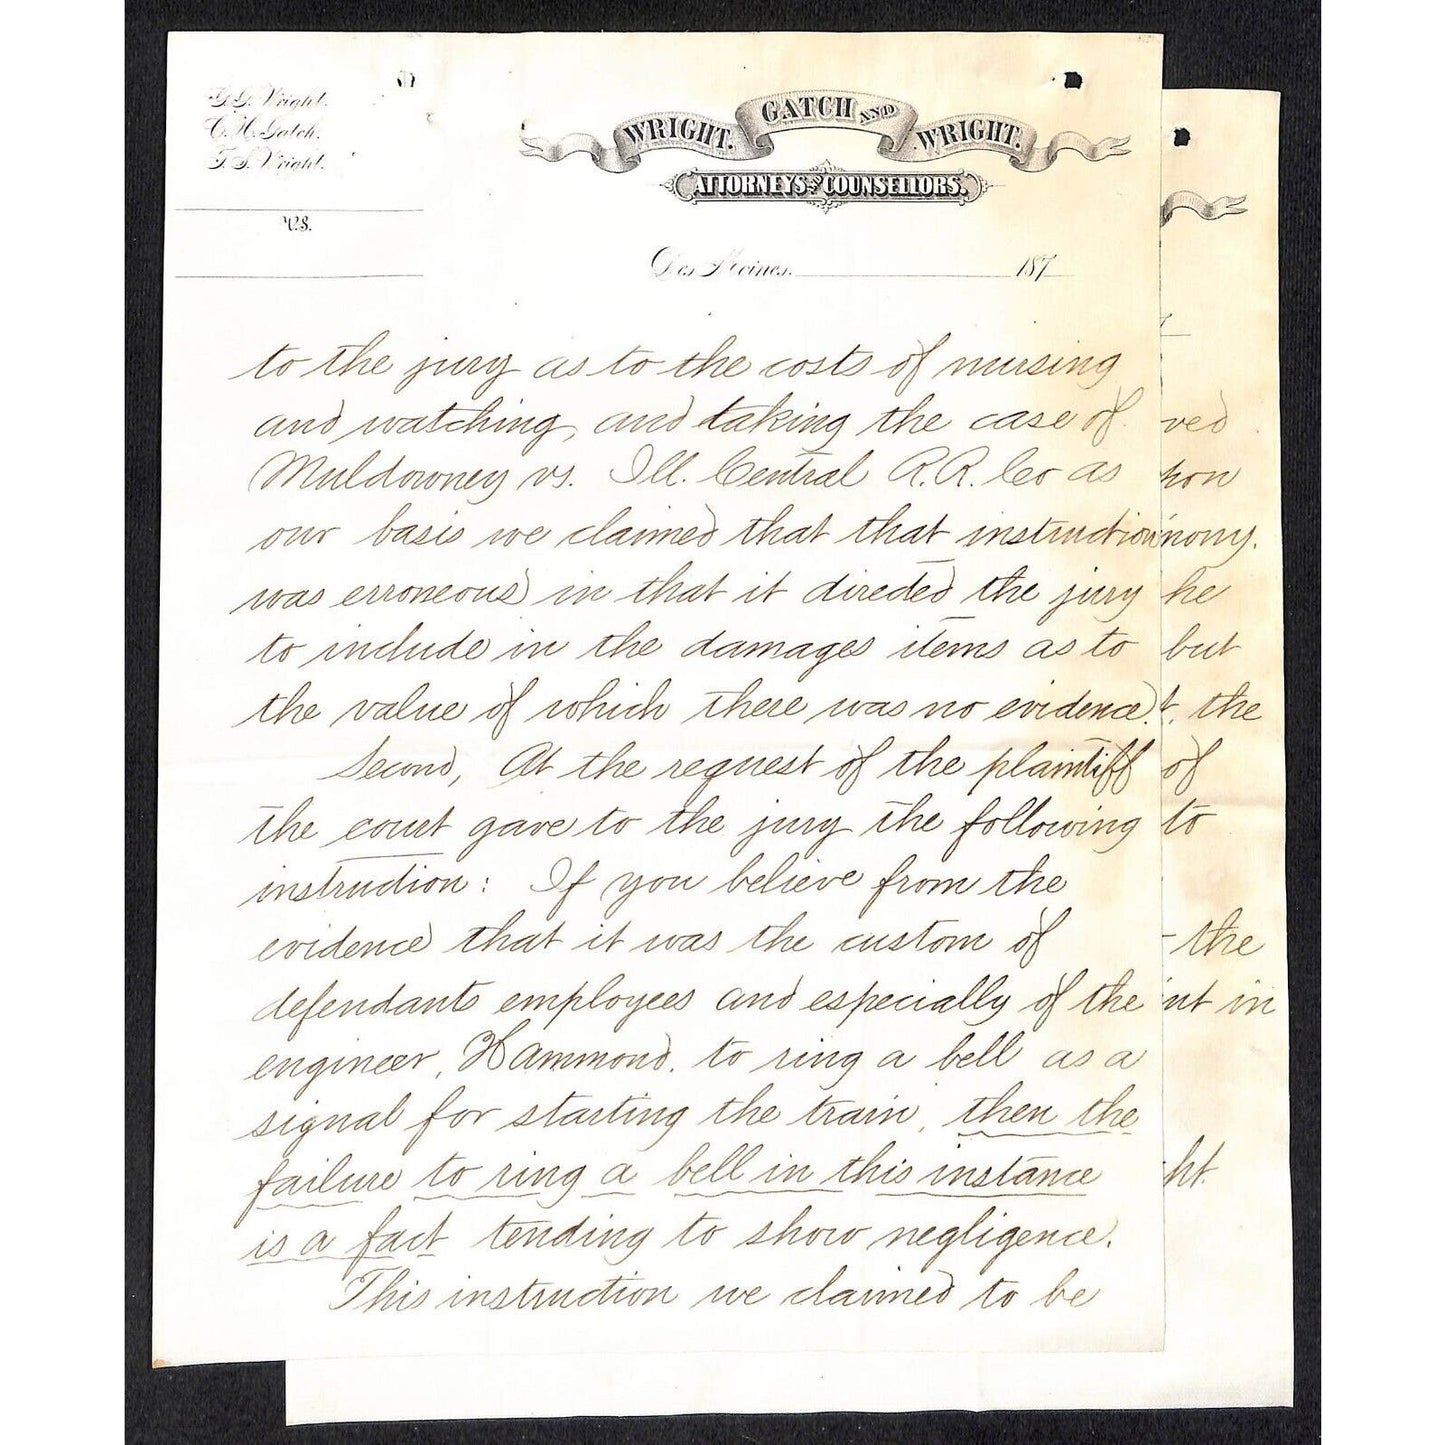 G.G. Wright.
C.H. Gatch.
T.S. Wright.
vs.
WRIGHT, GATCH AND WRIGHT.
ATTORNEYS AND COUNSELLORS.
Des Moines, 187
to the jury as to the costs of nursing
and watching, and taking the case of
Muldowney vs. Ill. Central R.R. Co as
our basis we claimed that that instruction
was erroneous in that it directed the jury
to include in the damages items as to
the value of which there was no evidence.
Second, At the request of the plaintiff
the court gave to the jury the following
instruction: If you believe from the
evidence that it was the custom of
defendants employees and especially of the
engineer, Hammond, to ring a bell as a
signal for starting the train, then the
failure to ring a bell in this instance
is a fact tending to show negligence.
This instruction we claimed to be
ved
pon
mony.
he
but
t, the
of
to
the
nt in
ht.